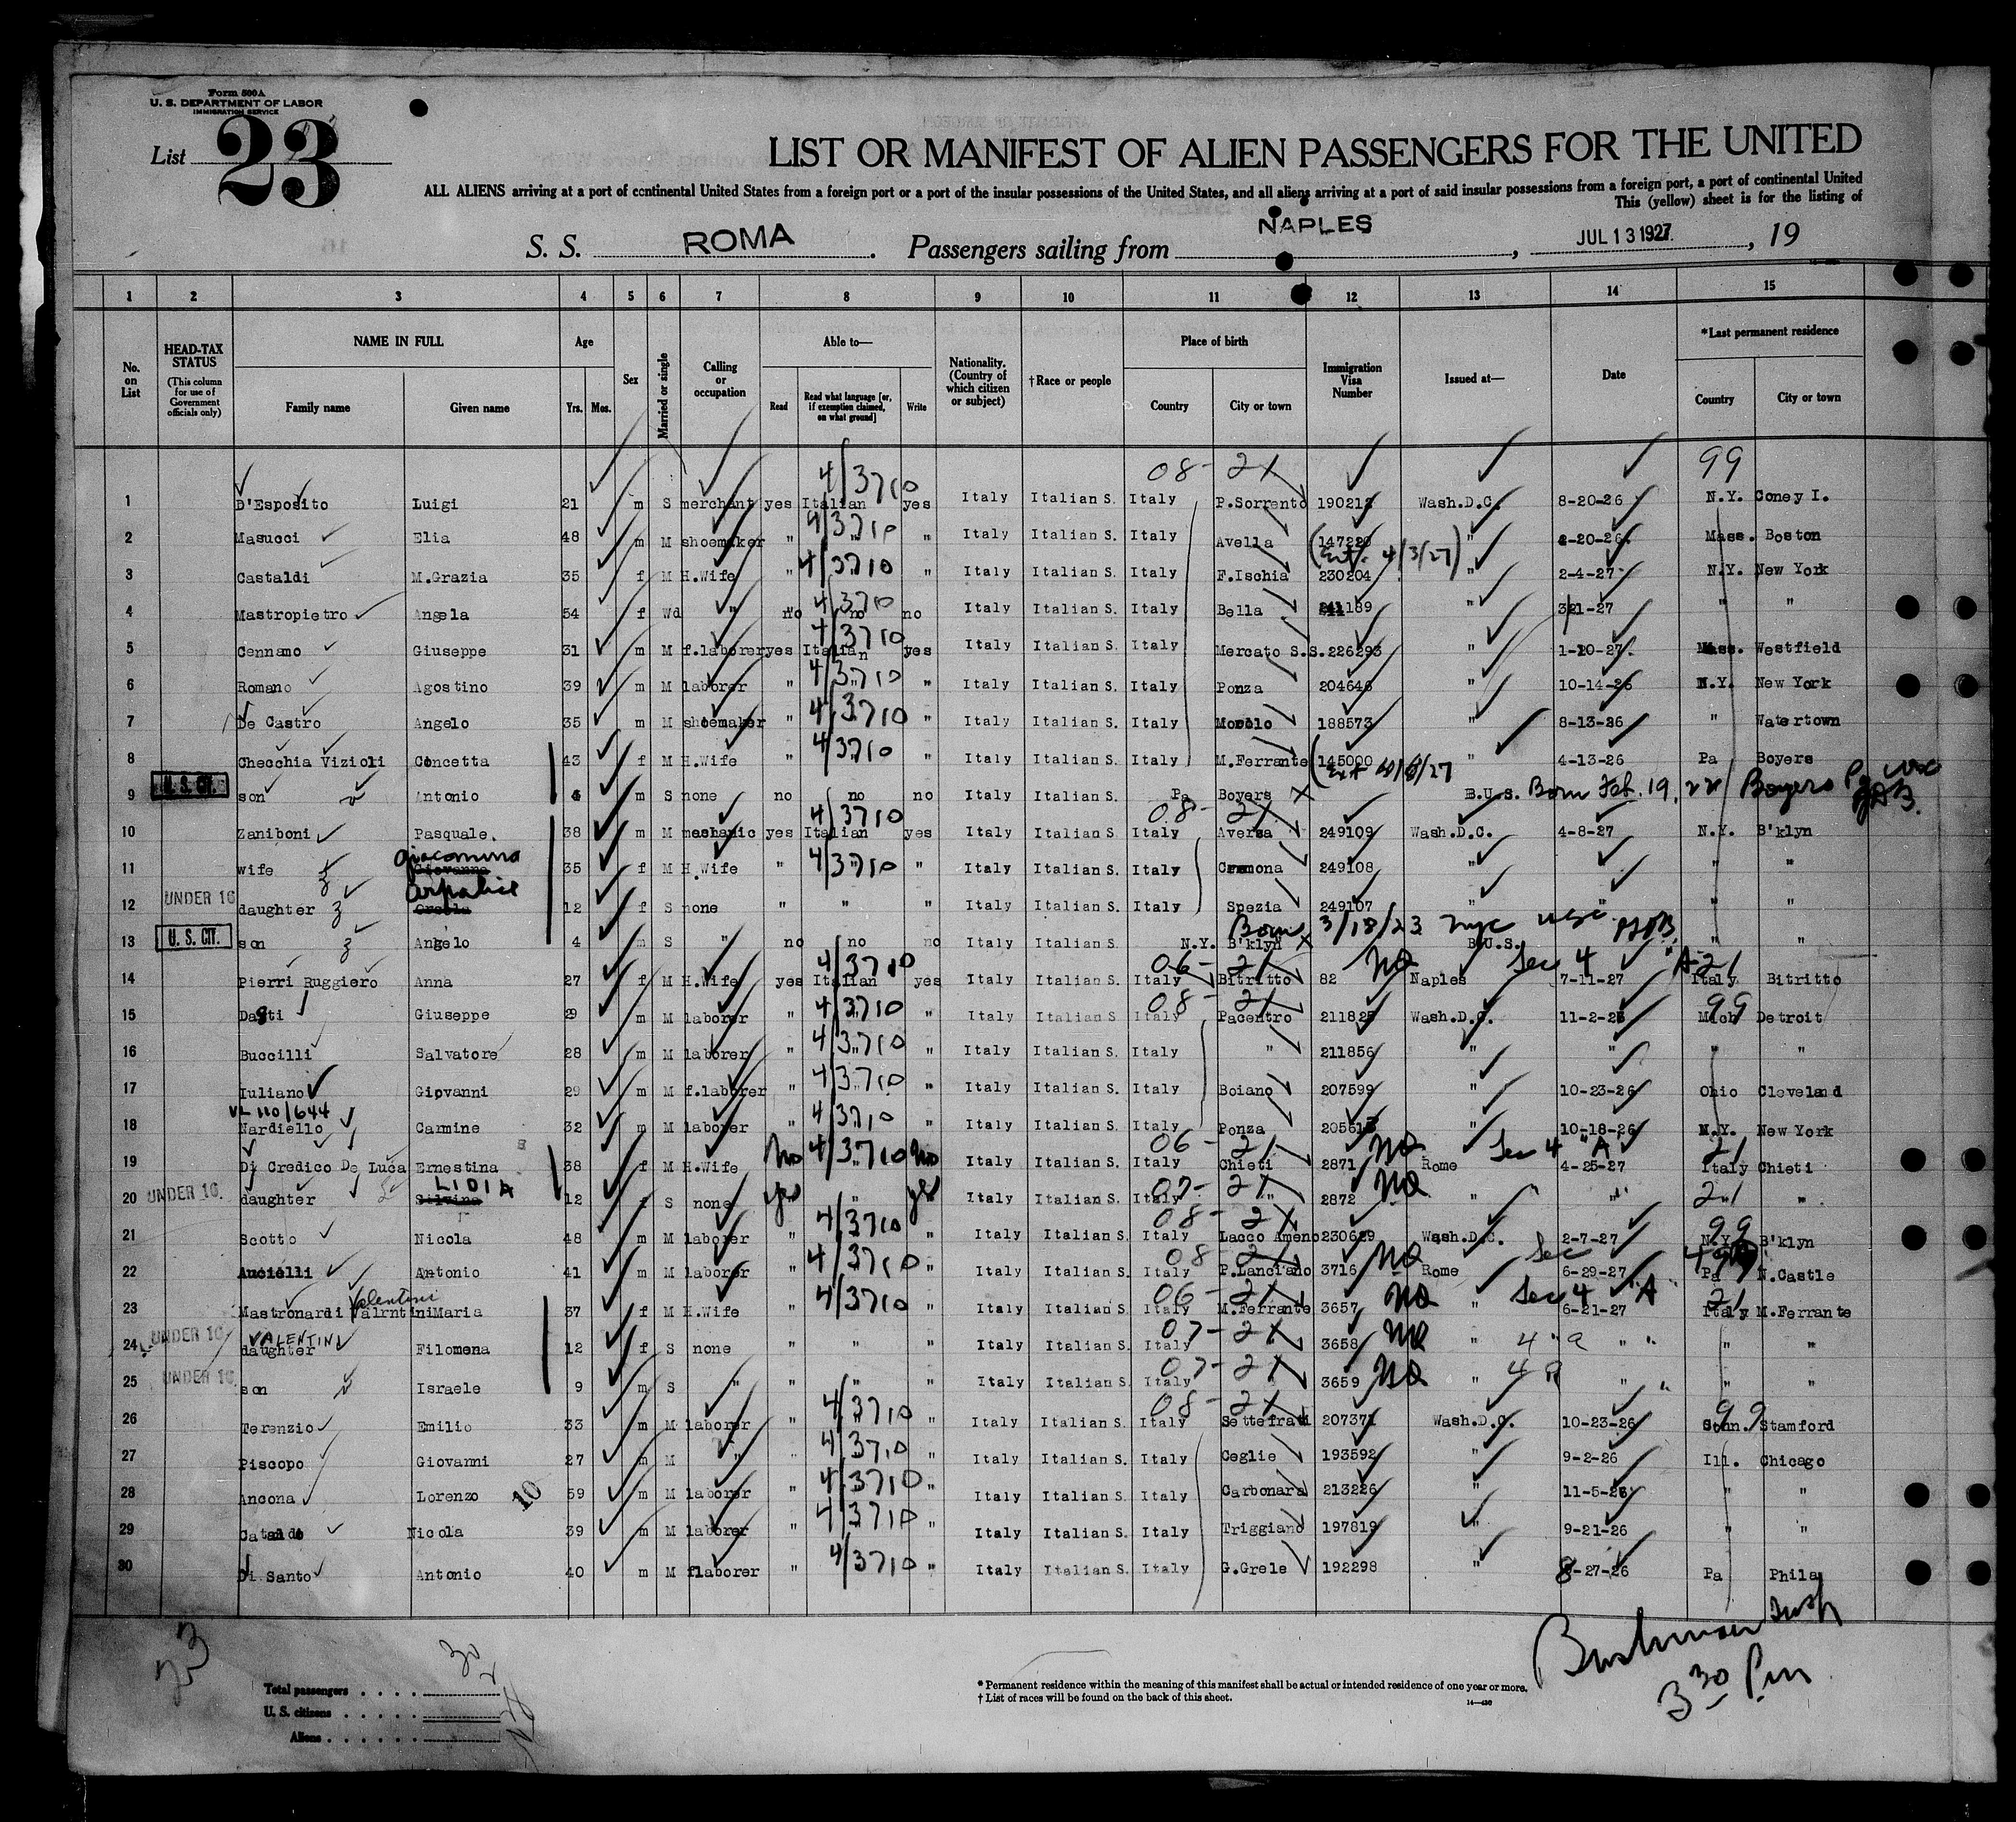 Form 500A
U. S. DEPARTMENT OF LABOR
IMMIGRATION SERVICE
List 23
LIST OR MANIFEST OF ALIEN PASSENGERS FOR THE UNITED
ALL ALIENS arriving at a port of continental United States from a foreign port or a port of the insular possessions of the United States, and all aliens arriving at a port of said insular possessions from a foreign port, a port of continental United
This (yellow) sheet is for the listing of
S. S. ROMA . Passengers sailing from NAPLES , JUL 13 1927. , 19
1 2 3 4 5 6 7 8 9 10 11 12 13 14 15
No. on List
HEAD-TAX STATUS (This column for use of Government officials only)
NAME IN FULL
Family name Given name
Age
Yrs. Mos.
Sex
Married or single
Calling or occupation
Able to—
Read Read what language [or, if exemption claimed, on what ground] Write
Nationality. (Country of which citizen or subject)
†Race or people
Place of birth
Country City or town
Immigration Visa Number
Issued at—
Date
*Last permanent residence
Country City or town
4/3710 08- 21 99
1 D'Esposito Luigi 21 m S merchant yes Italian yes Italy Italian S. Italy P.Sorrento 190212 Wash.D.C. 8-20-26 N.Y. Coney I.
4/3710
2 Masucci Elia 48 m M shoemaker " " " Italy Italian S. Italy Avella 147220 -20-26 Mass. Boston
4/3710 (Ext. 4/3/27)
3 Castaldi M.Grazia 35 f M H.Wife " " " Italy Italian S. Italy F.Ischia 230204 " 2-4-27 N.Y. New York
4/3710
4 Mastropietro Angela 54 f Wd " no no no Italy Italian S. Italy Bella 241189 " 3/21-27 " "
4/3710
5 Cennamo Giuseppe 31 m M f.laborer yes Italian yes Italy Italian S. Italy Mercato S.S. 226293 " 1-20-27. Mass. Westfield
4/3710
6 Romano Agostino 39 m M laborer " " " Italy Italian S. Italy Ponza 204646 " 10-14-26 N.Y. New York
4/3710
7 De Castro Angelo 35 m M shoemaker " " Italy Italian S. Italy 188573 " 8-13-26 " Watertown
4/3710
8 Checchia Vizioli Concetta 43 f M H.Wife " " " Italy Italian S. Italy M.Ferrante 145000 4-13-26 Pa Boyers
U. S. CIT.
9 son Antonio m S none no no no Italy Italian S. Pa Boyers B.U.S. Born Feb. 19, 22 Boyers Pa usc
4/3710 08- 21
10 Zaniboni Pasquale. 38 m M mechanic yes Italian yes Italy Italian S. Italy Aversa 249109 Wash.D.C. 4-8-27 N.Y. B'klyn
Giacomina
4/3710
11 wife Giovanna 35 f M H.Wife " " " Italy Italian S. Italy Cremona 249108 " " " "
UNDER 16
12 daughter 12 f S none " " " Italy Italian S. Italy Spezia 249107 " " " "
Born 3/18/23 nyc usc
U. S. CIT.
13 son Angelo 4 m S " no no no Italy Italian S. N.Y. B'klyn B.U.S. " "
4/3710 06- 21 NQ Sec 4 A-21
14 Pierri Ruggiero Anna 27 f M H.Wife yes Italian yes Italy Italian S. Italy Bitritto 82 Naples 7-11-27 Italy Bitritto
4/3710 08- 21 99
15 Giuseppe 29 m M laborer " " " Italy Italian S. Italy Pacentro 211825 Wash.D.C. 11-2-26 Mich Detroit
4/3710
16 Buccilli Salvatore 28 m M laborer " " " Italy Italian S. Italy " 211856 " " " "
4/3710
17 Iuliano Giovanni 29 m M f.laborer " " " Italy Italian S. Italy Boiano 207599 " 10-23-26 Ohio Cleveland
VL 110/644
4/3710
18 Nardiello Carmine 32 m M laborer " " " Italy Italian S. Italy Ponza " 10-18-26 N.Y. New York
No 4/3710 No 06- 21 NQ Sec 4 "A" 21
19 Di Credico De Luca Ernestina 38 f M H.Wife " Italy Italian S. Italy Chieti 2871 Rome 4-25-27 Italy Chieti
LIDIA
UNDER 16. yes yes 07- 21 NQ 21
20 daughter Silvina 12 f S none " Italy Italian S. Italy " 2872 " " "
4/3710 08- 21 99
21 Scotto Nicola 48 m M laborer " " " Italy Italian S. Italy Lacco Ameno 230629 Wash.D.C. 2-7-27 N.Y. B'klyn
4/3710 08- 21 NQ Sec
22 Aucielli Antonio 41 m M laborer " " " Italy Italian S. Italy P.Lanciano 3716 Rome 6-29-27 Pa N.Castle
Valentini
4/3710 06- 21 NQ Sec 4 "A" 21
23 Mastronardi Valrntini Maria 37 f M H.Wife " " " Italy Italian S. Italy M.Ferrante 3657 " 6-21-27 Italy M.Ferrante
UNDER 16 VALENTINI 07- 21 NQ 4 "a
24 daughter Filomena 12 f S none " " " Italy Italian S. Italy 3658 " " " " "
UNDER 16 07- 21 NQ 4 a
25 son Israele 9 m S " " " " Italy Italian S. Italy 3659 " " " " "
4/3710 08- 21 99
26 Terenzio Emilio 33 m M laborer " " " Italy Italian S. Italy Settefrati 207371 Wash.D.C. 10-23-26 Conn. Stamford
4/3710
27 Piscopo Giovanni 27 m M " " " " Italy Italian S. Italy Ceglie 193592 " 9-2-26 Ill. Chicago
10 4/3710
28 Ancona Lorenzo 59 m M laborer " " Italy Italian S. Italy Carbonara 213226 " 11-5-26 " "
4/3710
29 Cataldo Nicola 39 m M laborer " " Italy Italian S. Italy Triggiano 197819 " 9-21-26 " "
4/3710
30 Di Santo Antonio 40 m M flaborer " " Italy Italian S. Italy G.Grele 192298 " 8-27-26 Pa Phila
23
30
Total passengers . . . .
U. S. citizens . . . . .
Aliens . . . . . .
* Permanent residence within the meaning of this manifest shall be actual or intended residence of one year or more.
† List of races will be found on the back of this sheet.
14—430
Insp
3 30 Pm